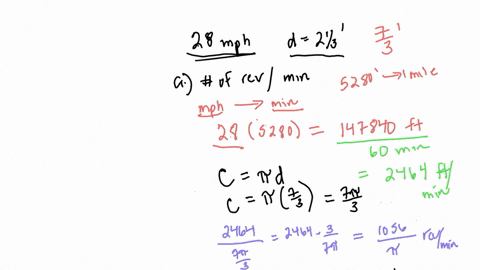 28 mph d = 2 1/3' 7/3'
a.) # of rev / min 5280' → 1 mile
mph → min
28 (5280) = 147840 ft / 60 min
= 2464 ft/min
C = πd
C = π(7/3) = 7π/3
2464 / (7π/3) = 2464 · 3/7π = 1056/π rev/min